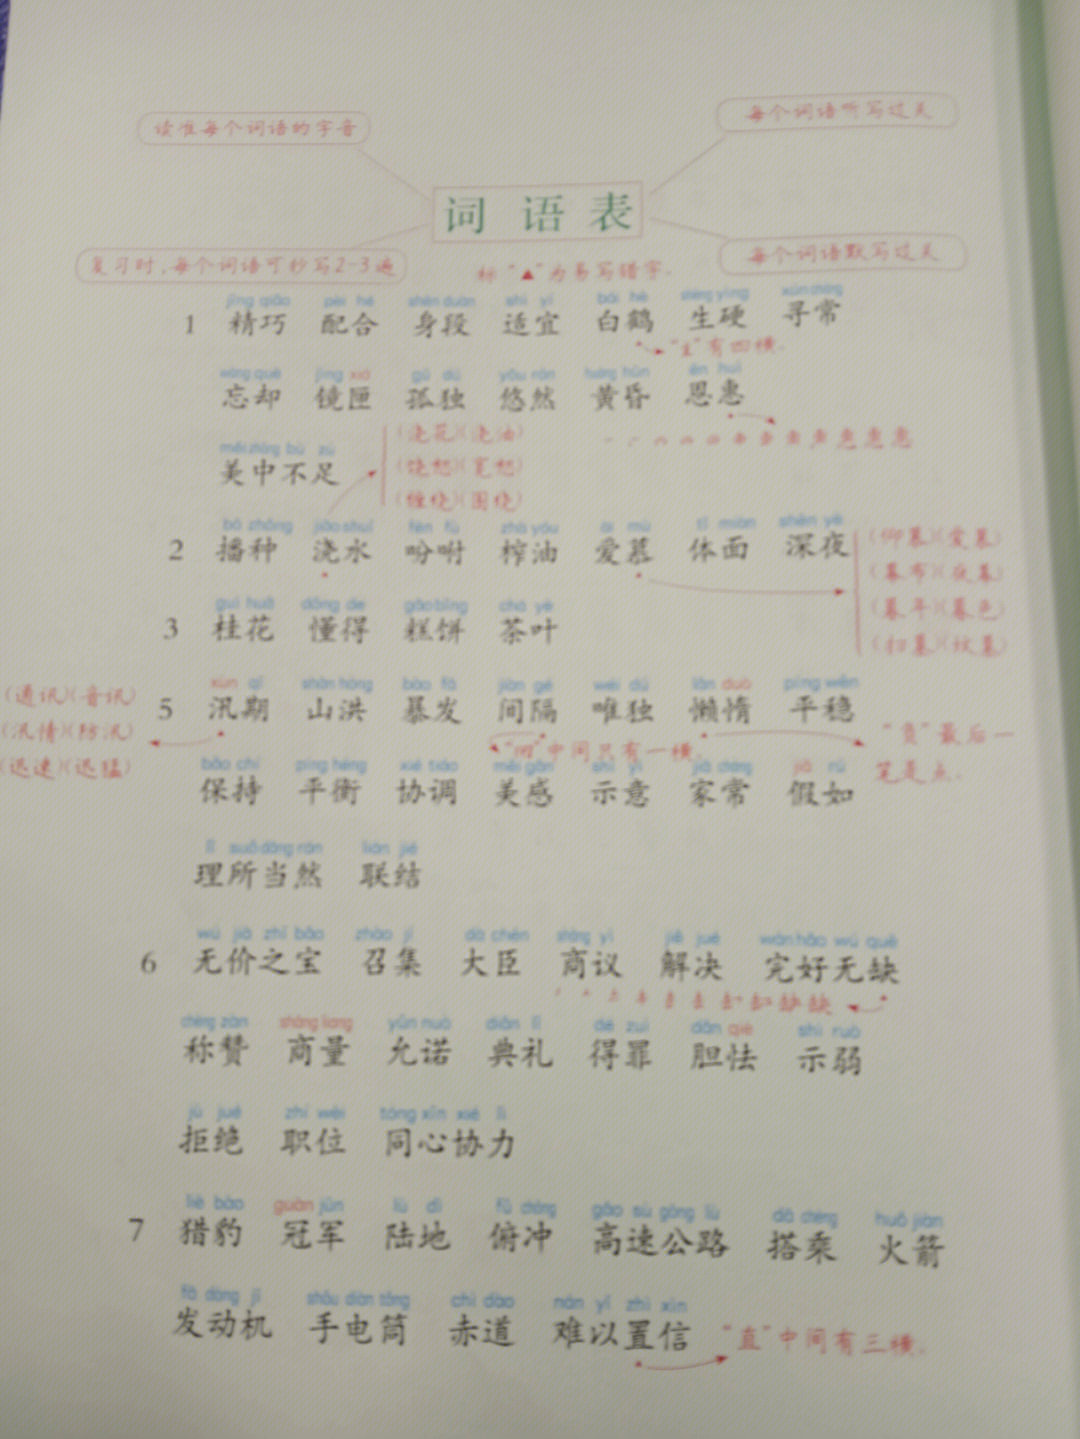 读准每个词语的字音
每个词语听写过关
词语表
复习时,每个词语可抄写2-3遍
每个词语默写过关
标“▲”为易写错字.
jīng qiǎo pèi hé shēn duàn shì yí bái hè shēng yìng xún cháng
1 精巧 配合 身段 适宜 白鹤 生硬 寻常
“隹”有四横.
wàng què jìng xiá gū dú yōu rán huáng hūn ēn huì
忘却 镜匣 孤独 悠然 黄昏 恩惠
měi zhōng bù zú
美中不足
(浇花)(浇油)
(饶恕)(宽恕)
(缠绕)(围绕)
bō zhǒng jiāo shuǐ fēn fù zhà yóu ài mù tǐ miàn shēn yè
2 播种 浇水 吩咐 榨油 爱慕 体面 深夜
(仰慕)(爱慕)
(幕布)(夜幕)
(暮年)(暮色)
(扫墓)(坟墓)
guì huā dǒng de gāo bǐng chá yè
3 桂花 懂得 糕饼 茶叶
xùn qī shān hóng bào fā jiàn gé wéi dú lǎn duò píng wěn
5 汛期 山洪 暴发 间隔 唯独 懒惰 平稳
(通讯)(音讯)
(汛情)(防汛)
(迅速)(迅猛)
中间只有一横.
“负”最后一
笔是点.
bǎo chí píng héng xié tiáo měi gǎn shì yì jiā cháng jiǎ rú
保持 平衡 协调 美感 示意 家常 假如
lǐ suǒ dāng rán lián jié
理所当然 联结
wú jià zhī bǎo zhào jí dà chén shāng yì jiě jué wán hǎo wú quē
6 无价之宝 召集 大臣 商议 解决 完好无缺
chēng zàn shāng liang yǔn nuò diǎn lǐ dé zuì dǎn qiè shì ruò
称赞 商量 允诺 典礼 得罪 胆怯 示弱
jù jué zhí wèi tóng xīn xié lì
拒绝 职位 同心协力
liè bào guàn jūn lù dì fǔ chōng gāo sù gōng lù dā chéng huǒ jiàn
7 猎豹 冠军 陆地 俯冲 高速公路 搭乘 火箭
fā dòng jī shǒu diàn tǒng chì dào nán yǐ zhì xìn
发动机 手电筒 赤道 难以置信
“直”中间有三横.